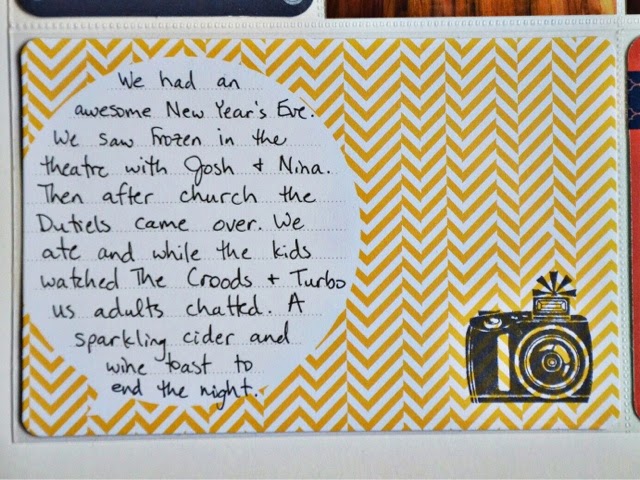 We had an
awesome New Year's Eve.
We saw Frozen in the
theatre with Josh + Nina.
Then after church the
Dutiels came over. We
ate and while the kids
watched The Croods + Turbo
us adults chatted. A
sparkling cider and
wine toast to
end the night.